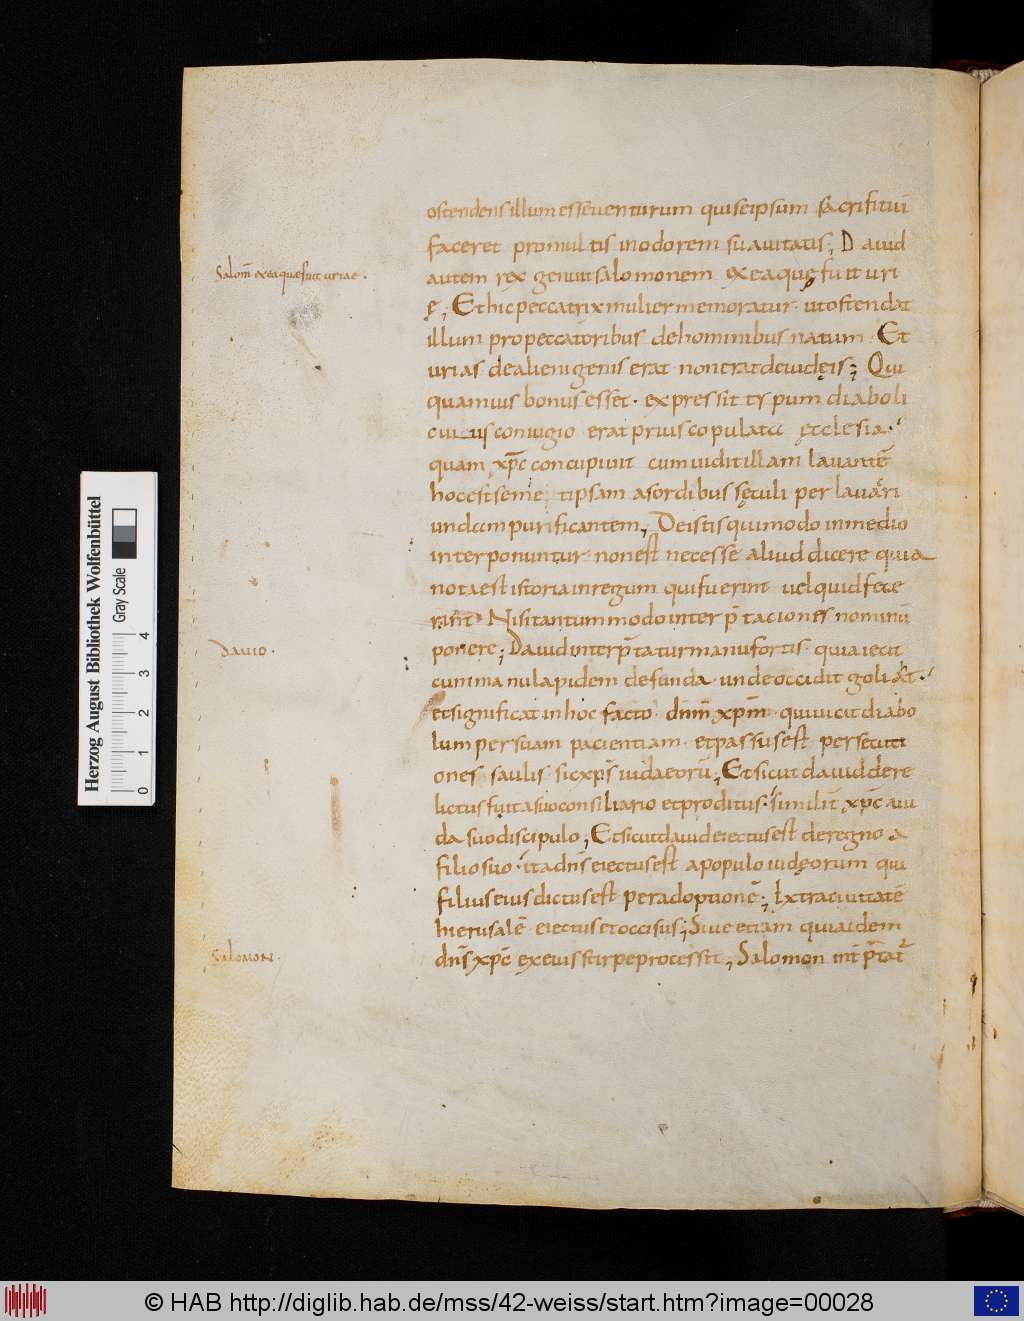 ostendens illum esse uenturum qui seipsum sacrifitiū
faceret pro multis in odorem suauitatis; Dauid
Salom̄ ex ea quae fuit uriae.
autem rex genuit salomonem ex ea quę fuit uri
ę; Et hic peccatrix mulier memoratur. ut ostendat
illum pro peccatoribus de hominibus natum. Et
urias de alienigenis erat. non erat de iudęis; Qui
quamuis bonus esset. expressit typum diaboli
cuius coniugio erat prius copulata ęcclesia.
quam xp̄c concupiuit cum uidit illam lauantē
hoc est semetipsam a sordibus sęculi per lauacri
undam purificantem; De istis qui modo in medio
interponuntur. non est necesse aliud dicere quia
nota est istoria in regum qui fuerint uel quid fece
rint. Nisi tantummodo interp̄taciones nominū
Dauid.
ponere; Dauid interp̄tatur manu fortis. quia iecit
cum manu lapidem de funda. unde occidit goliat.
et significat in hoc facto. dn̄m xp̄m. qui uicit diabo
lum per suam pacientiam. et passus est persecuti
ones saulis sic xp̄s iudaeorū; Et sicut dauid dere
lictus fuit a suo consiliario et proditus. similit̄ xp̄c a iu
da suo discipulo; Et sicut dauid eiectus est de regno a
filio suo. ita dn̄s eiectus est a populo iudęorum qui
filius eius dictus est per adoptionē; Extra ciuitatē
hierusalē eiectus et occisus; Siue etiam quia idem
Salomon.
dn̄s xp̄c ex eius stirpe processit; Salomon int̄p̄tat̄
Herzog August Bibliothek Wolfenbüttel
Gray Scale
0 1 2 3 4
© HAB http://diglib.hab.de/mss/42-weiss/start.htm?image=00028